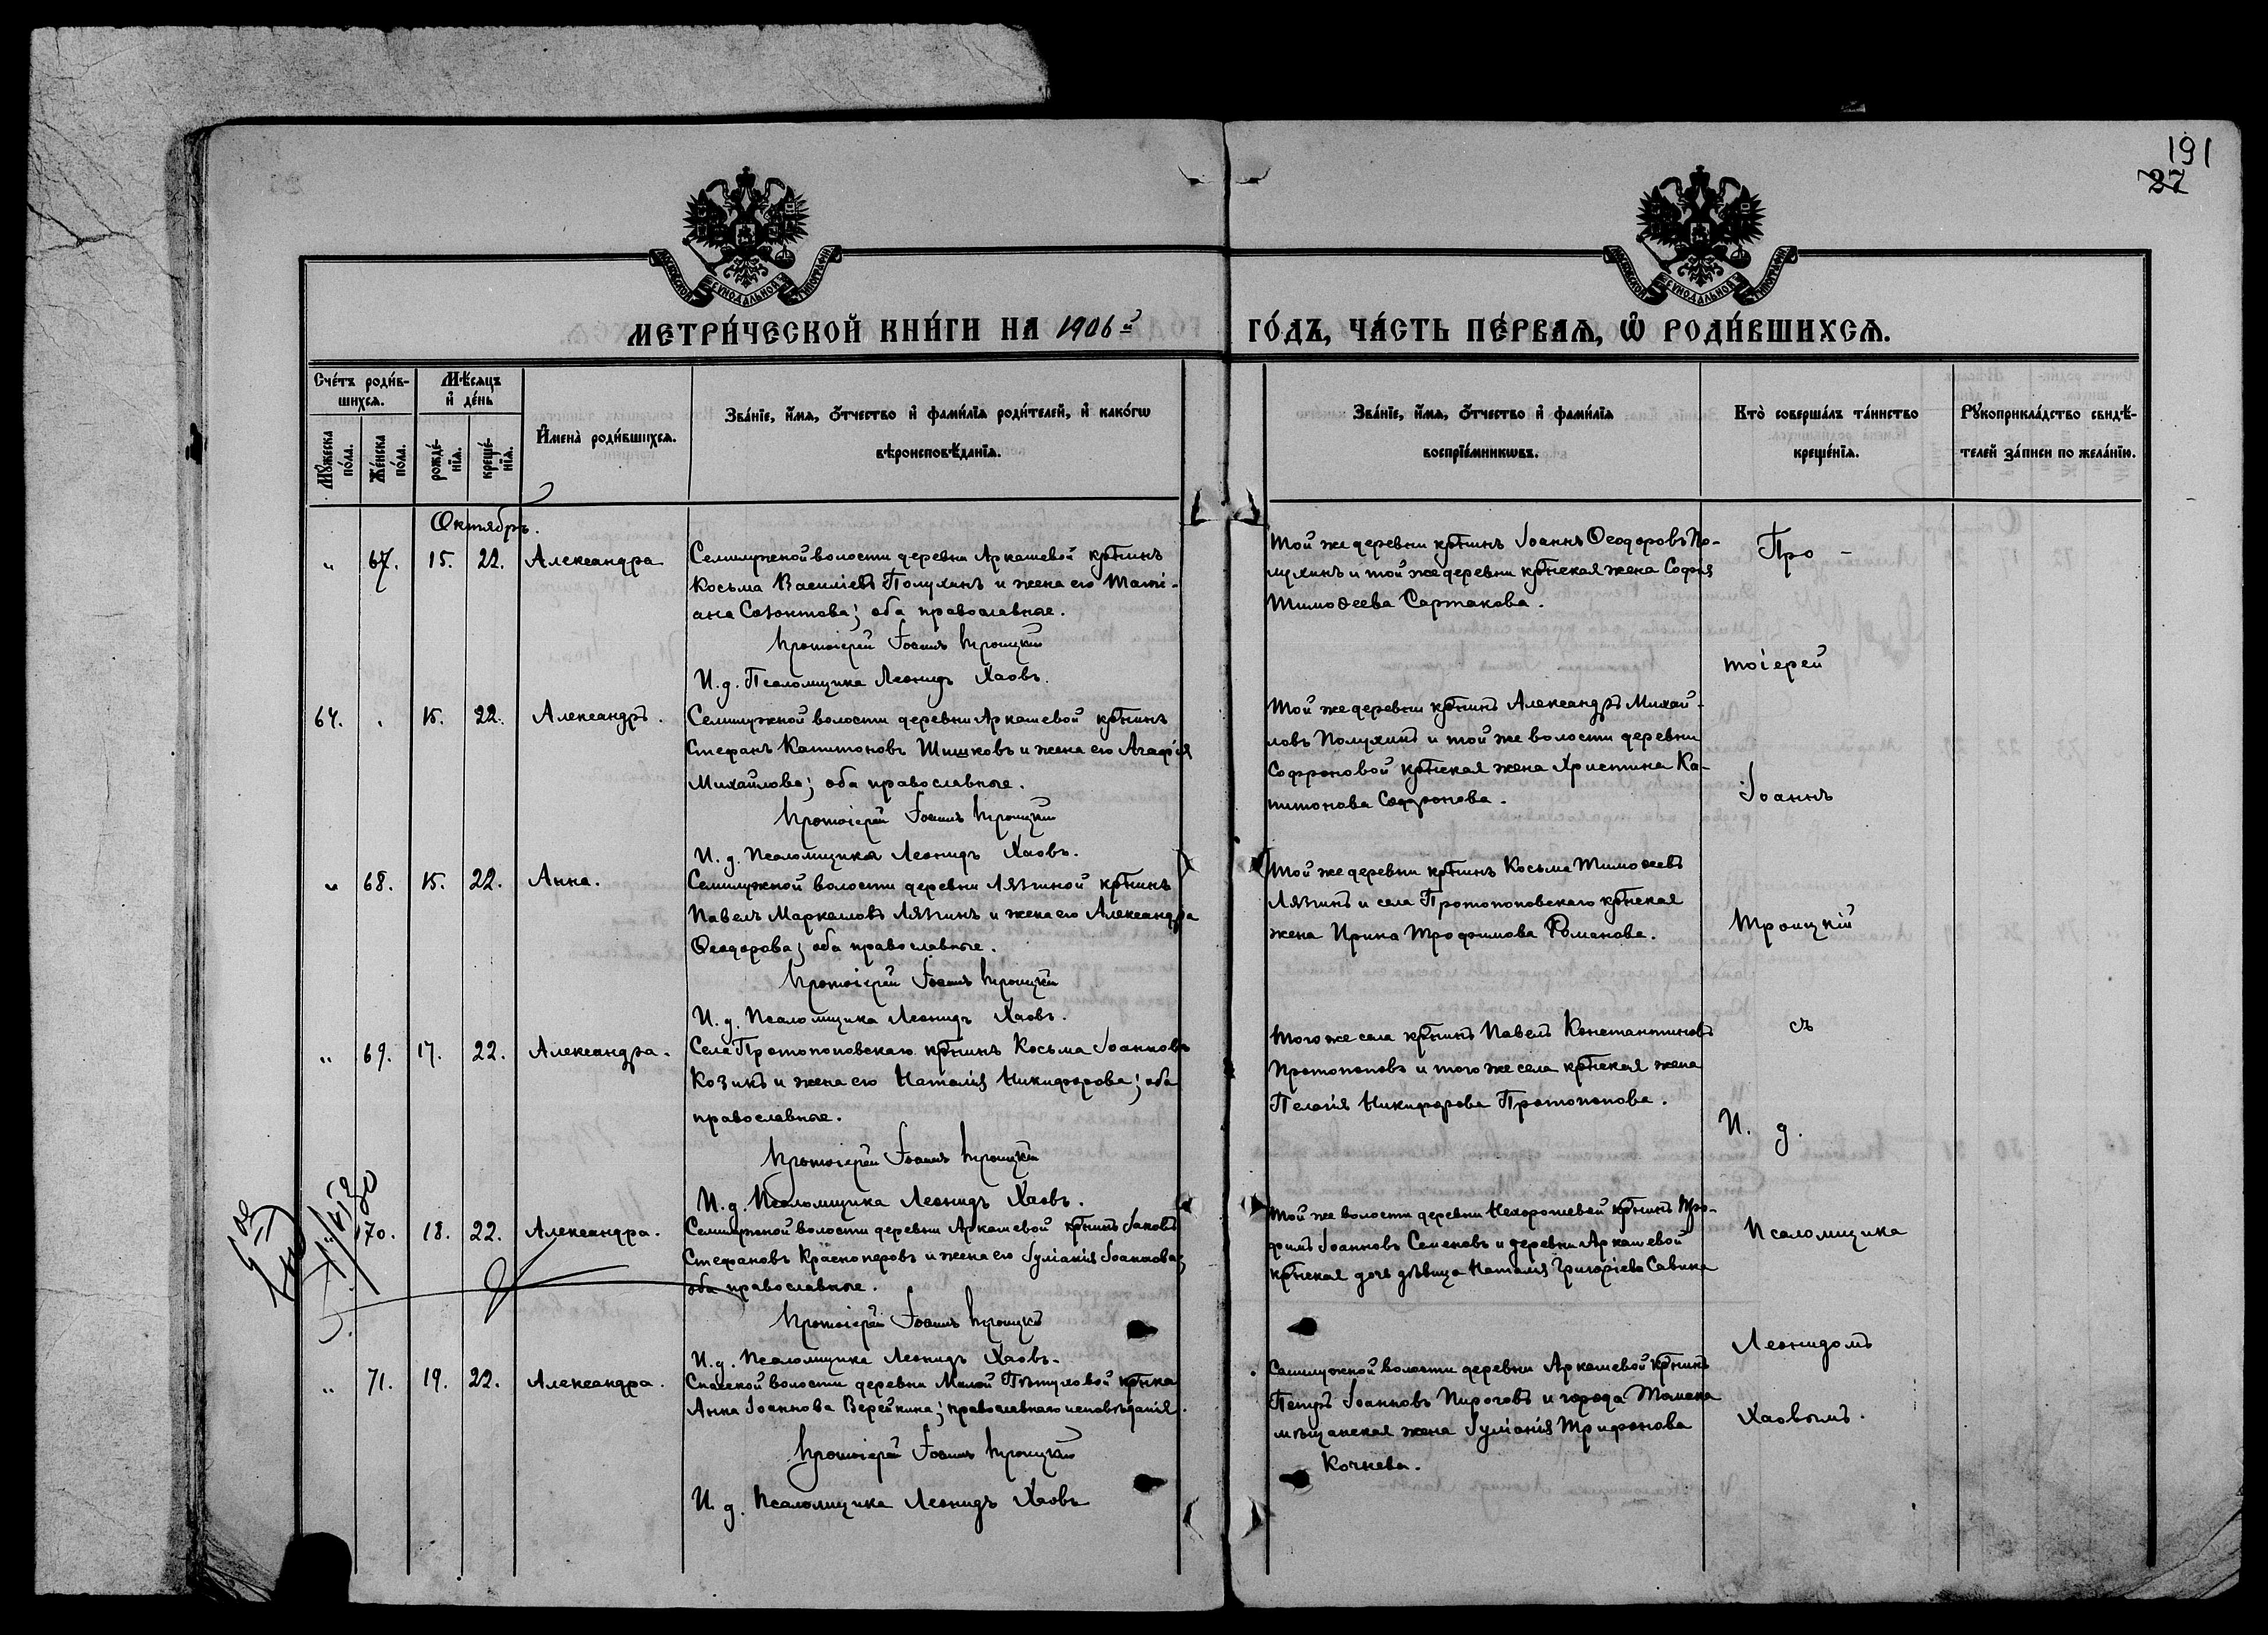 191
27
МОСКОВСКОЙ СѴНОДАЛЬНОЙ ТѴПОГРАФІИ
МОСКОВСКОЙ СѴНОДАЛЬНОЙ ТѴПОГРАФІИ
МЕТРИ́ЧЕСКОЙ КНИ́ГИ НА 1906й ГО́ДЪ, ЧА́СТЬ ПЕ́РВАЯ, Ѡ РОДИ́ВШИХСЯ.
Сче́тъ роди́в-
шихся.
Мꙋжеска по́ла.
Же́нска по́ла.
Мѣ́сяцъ
и де́нь
рожде́-
нїя.
креще́-
нїя.
Имена̀ роди́вшихся.
Зва́нїе, и́мя, о́тчество и фами́лїя роди́телей, и како́гѡ
вѣроисповѣ́данїя.
Зва́нїе, и́мя, о́тчество и фами́лїя
воспрїе́мникѡвъ.
Кто̀ соверша́лъ та́инство
креще́нїя.
Рꙋкоприкла́дство свидѣ́-
телей за́писи по жела́нїю.
Октябрь.
" 67. 15. 22. Александра
Семилужной волости деревни Аркашевой кр҃тнинъ
Косьма Василіевъ Полухинъ и жена его Тати-
ана Созонтова; оба православные.
Протоіерей Іоаннъ Троицкій
И. д. Псаломщика Леонидъ Хаовъ.
Той же деревни кр҃тнинъ Іоаннъ Ѳеодоровъ По-
лухинъ и той же деревни кр҃тнская жена Софія
Тимоѳеева Сартакова.
64. " 15. 22. Александръ.
Семилужной волости деревни Аркашевой кр҃тнинъ
Стефанъ Капитоновъ Шишковъ и жена его Агафія
Михайлова; оба православные.
Протоіерей Іоаннъ Троицкій
И. д. Псаломщика Леонидъ Хаовъ.
Той же деревни кр҃тнинъ Александръ Михай-
ловъ Полухинъ и той же волости деревни
Софроновой кр҃тнская жена Христина Ка-
питонова Софронова.
" 68. 15. 22. Анна.
Семилужной волости деревни Лязгиной кр҃тнинъ
Павелъ Маркелловъ Лязгинъ и жена его Александра
Ѳеодорова; оба православные.
Протоіерей Іоаннъ Троицкій
И. д. Псаломщика Леонидъ Хаовъ.
Той же деревни кр҃тнинъ Косьма Тимоѳеевъ
Лязгинъ и села Протопоповскаго кр҃тнская
жена Ирина Трофимова Романова.
" 69. 17. 22. Александра.
Села Протопоповскаго кр҃тнинъ Косьма Іоанновъ
Козикъ и жена его Наталія Никифорова; оба
православные.
Протоіерей Іоаннъ Троицкій
И. д. Псаломщика Леонидъ Хаовъ.
Того же села кр҃тнинъ Павелъ Константиновъ
Протопоповъ и того же села кр҃тнская жена
Пелагія Никифорова Протопопова.
170. 18. 22. Александра.
Семилужной волости деревни Аркашевой кр҃тнинъ Іаковъ
Стефановъ Красноперовъ и жена его Іуліанія Іоаннова;
оба православные.
Протоіерей Іоаннъ Троицкій
И. д. Псаломщика Леонидъ Хаовъ.
Той же волости деревни Нехорошевой кр҃тнинъ Тро-
фимъ Іоанновъ Семеновъ и деревни Аркашевой
кр҃тнская дочь дѣвица Наталія Григоріева Савина
" 71. 19. 22. Александра.
Спасской волости деревни Малой Пѣтуховой кр҃тнка
Анна Іоаннова Верейкина; православнаго исповѣданія.
Протоіерей Іоаннъ Троицкій
И. д. Псаломщика Леонидъ Хаовъ
Семилужной волости деревни Аркашевой кр҃тнинъ
Петръ Іоанновъ Пироговъ и города Томска
мѣщанская жена Іуліанія Трифонова
Кочнева.
Про-
тоіерей
Іоаннъ
Троицкій
съ
И. д.
Псаломщика
Леонидомъ
Хаовымъ.